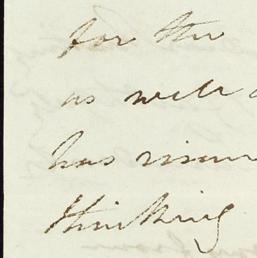 for the
as well
has risen
thinking